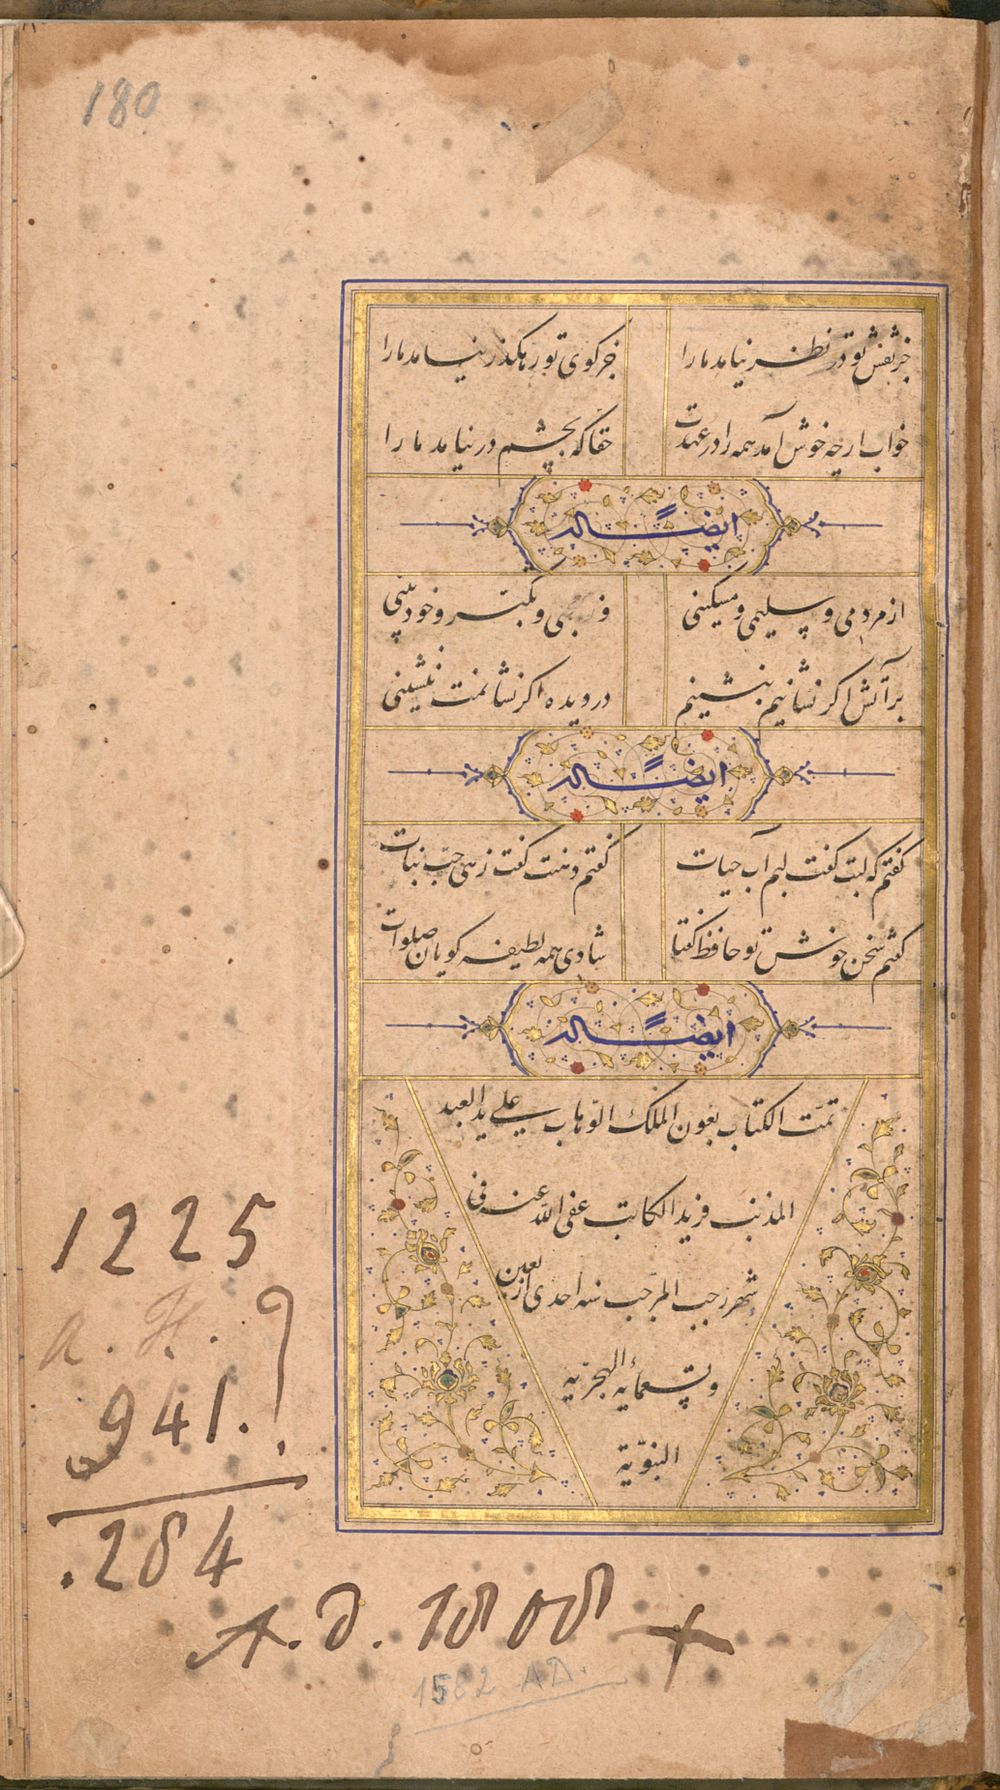 180
جز نقش تو در نظر نیامد ما را
جز کوی تو رهگذر نیامد ما را
خواب ارچه خوش آمد همه را در عهدت
حقا که بچشم در نیامد ما را
ایضاً له
از مردمی و سلیمی و مسکینی
وز و تکبر و خودبینی
بر آتش اکر نشانیم بنشینم
در دیده اکر نشانمت ننشینی
ایضاً له
کفتم که لبت کفت لبم آب حیات
کفتم دهنت کفت زهی حب نبات
کفتم سخن خوش تو حافظ کفتا
شادی همه لطیفه کویان صلوات
ایضاً له
تمت الکتاب بعون الملک الوهاب علی ید العبد
المذنب فرید الکاتب عفی الله عنه فی
شهر رجب المرجب سنه احدی اربعین
و تسعمائه الهجریه
النبویة
1225
a. H. ?
941.
.284
A.D. 1808 +
1582 AD.